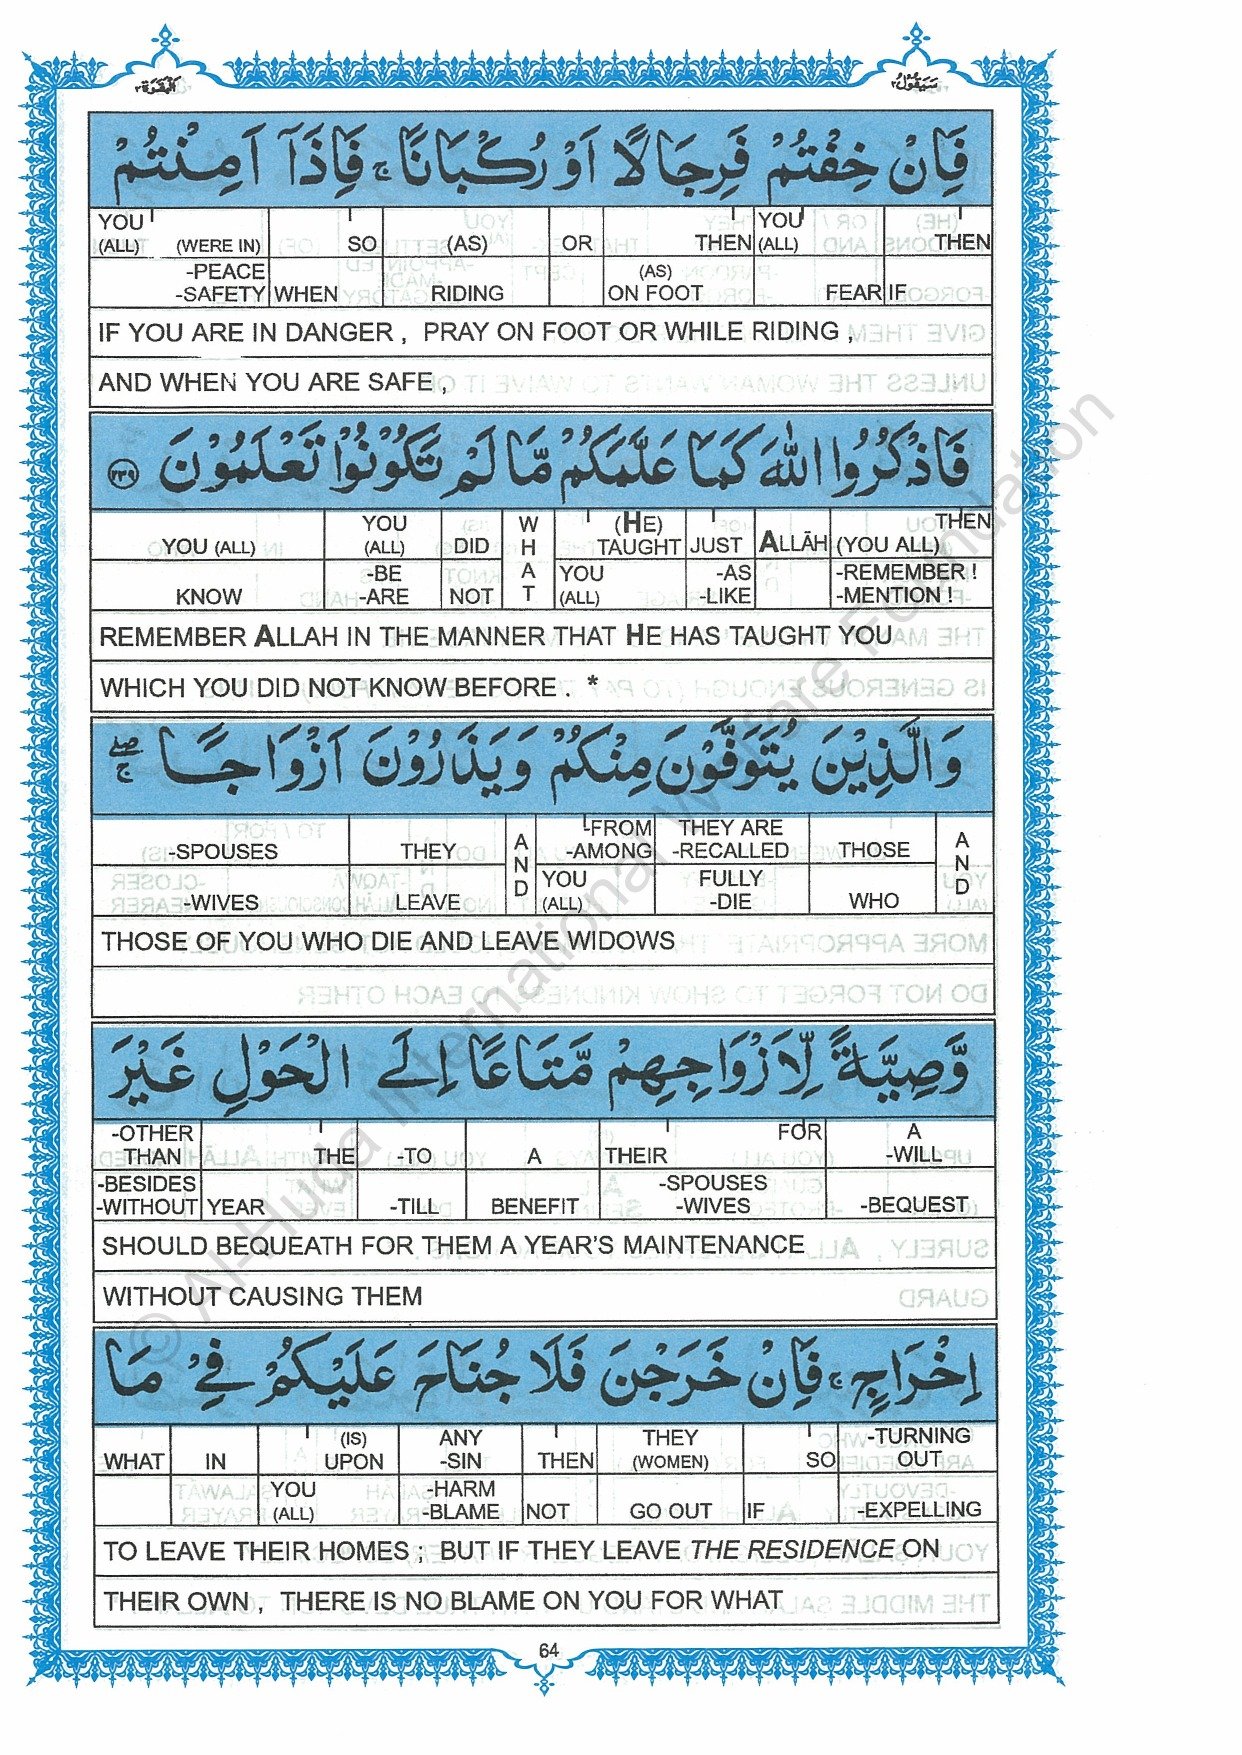 سَيَقُولُ ٢
اَلْبَقَرَة ٢
فَاِنْ خِفْتُمْ فَرِجَالًا اَوْ رُكْبَانًا ۚ فَاِذَآ اَمِنْتُمْ
YOU (ALL) (WERE IN) SO (AS) OR THEN YOU (ALL) THEN
-PEACE -SAFETY WHEN RIDING (AS) ON FOOT FEAR IF
IF YOU ARE IN DANGER , PRAY ON FOOT OR WHILE RIDING ,
AND WHEN YOU ARE SAFE ,
فَاذْكُرُوا اللّٰهَ كَمَا عَلَّمَكُمْ مَّا لَمْ تَكُوْنُوْا تَعْلَمُوْنَ ٢٣٩
YOU (ALL) YOU (ALL) DID WHAT (HE) TAUGHT JUST ALLĀH THEN (YOU ALL)
KNOW -BE -ARE NOT YOU (ALL) -AS -LIKE -REMEMBER ! -MENTION !
REMEMBER ALLAH IN THE MANNER THAT HE HAS TAUGHT YOU
WHICH YOU DID NOT KNOW BEFORE . *
وَالَّذِيْنَ يُتَوَفَّوْنَ مِنْكُمْ وَيَذَرُوْنَ اَزْوَاجًا ۖۚ
-SPOUSES THEY AND -FROM -AMONG THEY ARE -RECALLED THOSE AND
-WIVES LEAVE YOU (ALL) FULLY -DIE WHO
THOSE OF YOU WHO DIE AND LEAVE WIDOWS
وَّصِيَّةً لِّاَزْوَاجِهِمْ مَّتَاعًا اِلَى الْحَوْلِ غَيْرَ
-OTHER THAN THE -TO A THEIR FOR A -WILL
-BESIDES -WITHOUT YEAR -TILL BENEFIT -SPOUSES -WIVES -BEQUEST
SHOULD BEQUEATH FOR THEM A YEAR'S MAINTENANCE
WITHOUT CAUSING THEM
اِخْرَاجٍ ۚ فَاِنْ خَرَجْنَ فَلَا جُنَاحَ عَلَيْكُمْ فِيْ مَا
WHAT IN (IS) UPON ANY -SIN THEN THEY (WOMEN) SO -TURNING OUT
YOU (ALL) -HARM -BLAME NOT GO OUT IF -EXPELLING
TO LEAVE THEIR HOMES ; BUT IF THEY LEAVE THE RESIDENCE ON
THEIR OWN , THERE IS NO BLAME ON YOU FOR WHAT
64
© Al-Huda International Welfare Foundation